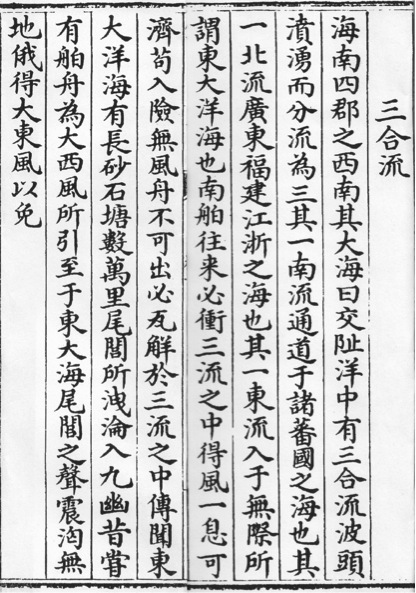 三合流
海南四郡之西南其大海曰交阯洋中有三合流波頭
濆湧而分流為三其一南流通道于諸蕃國之海也其
一北流廣東福建江浙之海也其一東流入于無際所
謂東大洋海也南舶往来必衝三流之中得風一息可
濟苟入險無風舟不可出必瓦解於三流之中傳聞東
大洋海有長砂石塘數萬里尾閭所洩淪入九幽昔嘗
有舶舟為大西風所引至于東大海尾閭之聲震汹無
地俄得大東風以免